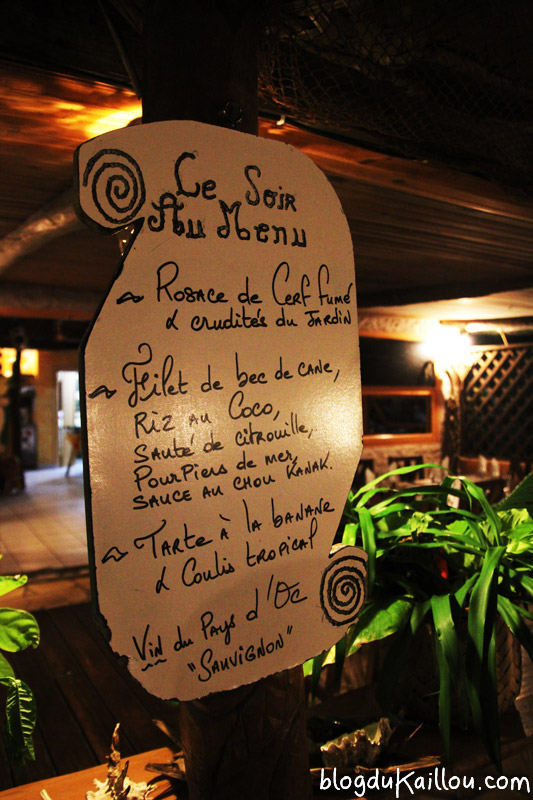 Le Soir
Au Menu
~ Rosace de Cerf fumé
& crudités du Jardin
~ Filet de bec de cane,
Riz au Coco,
Sauté de citrouille,
PourPiers de mer,
Sauce au chou Kanak.
~ Tarte à la banane
& Coulis tropical
Vin du Pays d'Oc
"Sauvignon"
blogduKaillou.com